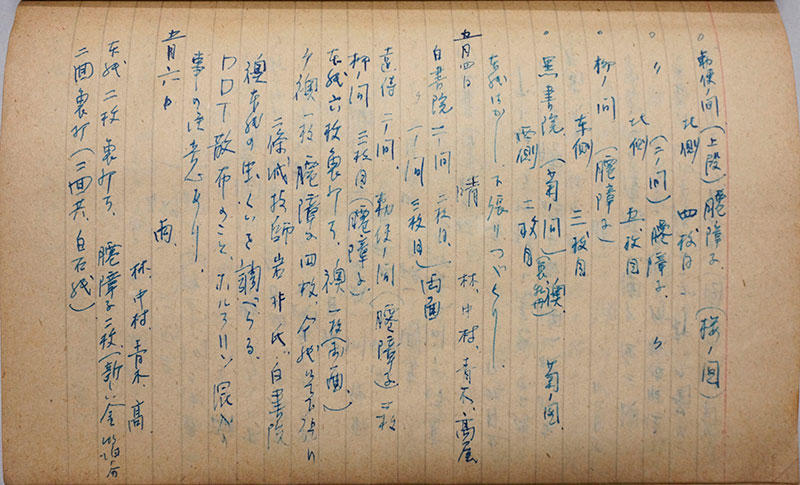 。勅使ノ間(上段)腰障子.(桜ノ図)
北側 四枚目
。〃 (二ノ間)腰障子.〃
北側 五枚目
。柳ノ間(腰障子)
東側 三枚目
。黒書院(菊ノ間)襖. 菊ノ図.
西側 二枚目
本紙はがし 下張りつやくり
五月四日 晴 林、中村、青木、高屋
白書院 一ノ間 二枚目、両面
〃 一ノ間 三枚目
遠侍 一ノ間. 勅使ノ間(腰障子)二枚
柳ノ間 三枚目(腰障子)
本紙六枚裏打ち、襖一枚(両面)
襖一枚 腰障子四枚、本紙下張り
二條城技師岩井氏、白書院
襖本紙の虫くいを調べらる.
DDT散布のこと、ホルマリン混入
事の注意あり.
五月六日 雨.
林、中村、青木、高
本紙二枚裏打ち、腰障子二枚(新い金箔分
二面裏打(二面共、白石紙)